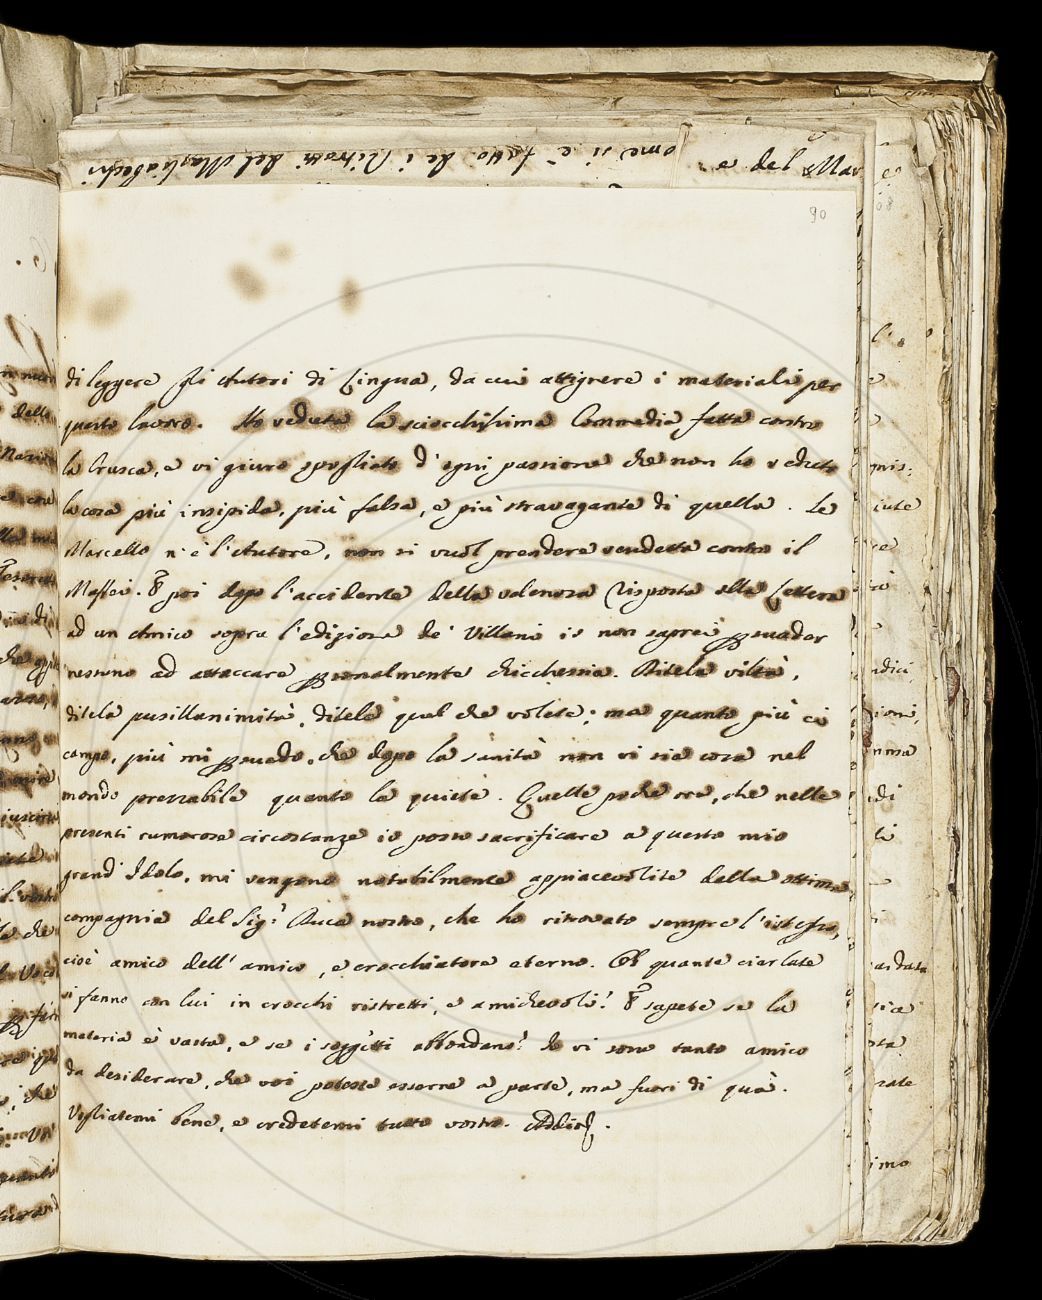 ome si è fatto de i Ritratti del Magliabechi
e del Mar
90
di leggere gli Autori di Lingua, da cui attignere i materiali per
questo lavoro. Ho veduta la sciocchissima Commedia fatta contro
la Crusca, e vi giuro spogliato d'ogni passione che non ho veduto
la cosa più insipida, più falsa, e più stravagante di quella. Se
Marcello n'è l'Autore, non si vuol prendere vendetta contro il
Maffei. E poi dopo l'accidente della velenosa Risposta alla Lettera
ad un Amico sopra l'edizione de' Villani io non saprei psuader
nessuno ad attaccare psonalmente chicchessia. Ditela viltà,
ditela pusillanimità, ditela quel che volete; ma quanto più ci
campo, più mi psuado, che dopo la sanità non vi sia cosa nel
mondo prezzabile quanto la quiete. Quelle poche ore, che nelle
presenti rumorose circostanze io posso sacrificare a questo mio
grand'Idolo, mi vengono notabilmente appiacevolite dalla ottima
compagnia del Sig.r Duca nostro, che ho ritrovato sempre l'istesso,
cioè amico dell'amico, e crocchiatore eterno. Oh quante ciarlate
si fanno con lui in crocchi ristretti, e amichevoli! E sapete se la
materia è vasta, e se i soggetti abbondano! Io vi sono tanto amico
da desiderare, che voi poteste esserne a parte, ma fuori di quà.
Vogliatemi bene, e credetemi tutto vostro. Addio.